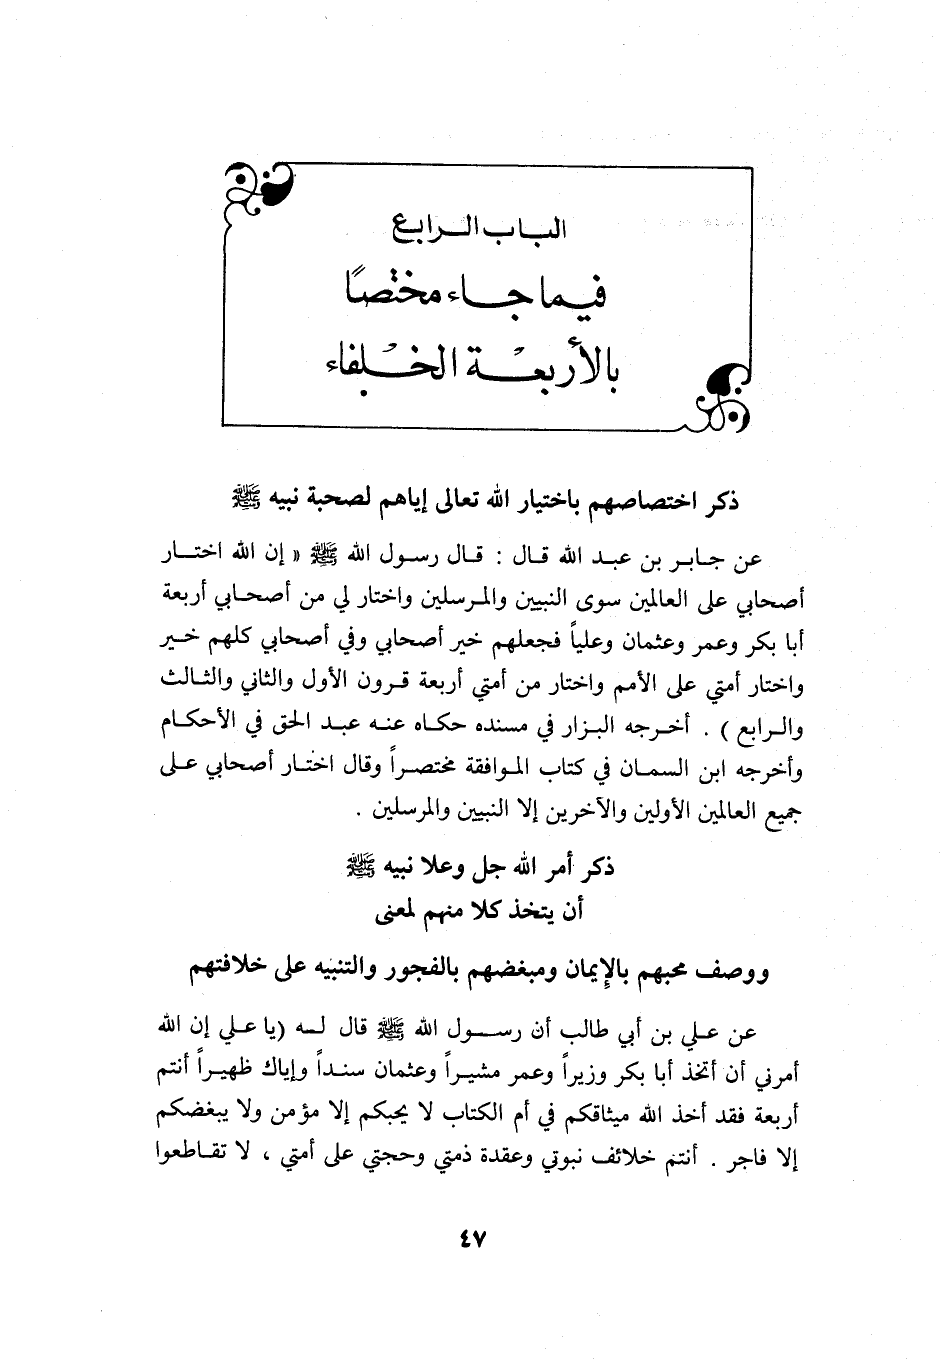 الباب الرابع
فيما جاء مختصًا
بالأربعة الخلفاء
ذكر اختصاصهم باختيار الله تعالى إياهم لصحبة نبيه ﷺ
عن جابر بن عبد الله قال : قال رسول الله ﷺ « إن الله اختار
أصحابي على العالمين سوى النبيين والمرسلين واختار لي من أصحابي أربعة
أبا بكر وعمر وعثمان وعلياً فجعلهم خير أصحابي وفي أصحابي كلهم خير
واختار أمتي على الأمم واختار من أمتي أربعة قرون الأول والثاني والثالث
والرابع ) . أخرجه البزار في مسنده حكاه عنه عبد الحق في الأحكام
وأخرجه ابن السمان في كتاب الموافقة مختصراً وقال اختار أصحابي على
جميع العالمين الأولين والآخرين إلا النبيين والمرسلين .
ذكر أمر الله جل وعلا نبيه ﷺ
أن يتخذ كلا منهم لمعنى
ووصف محبهم بالإيمان ومبغضهم بالفجور والتنبيه على خلافتهم
عن علي بن أبي طالب أن رسول الله ﷺ قال له (يا علي إن الله
أمرني أن أتخذ أبا بكر وزيراً وعمر مشيراً وعثمان سنداً وإياك ظهيراً أنتم
أربعة فقد أخذ الله ميثاقكم في أم الكتاب لا يحبكم إلا مؤمن ولا يبغضكم
إلا فاجر . أنتم خلائف نبوتي وعقدة ذمتي وحجتي على أمتي ، لا تقاطعوا
٤٧